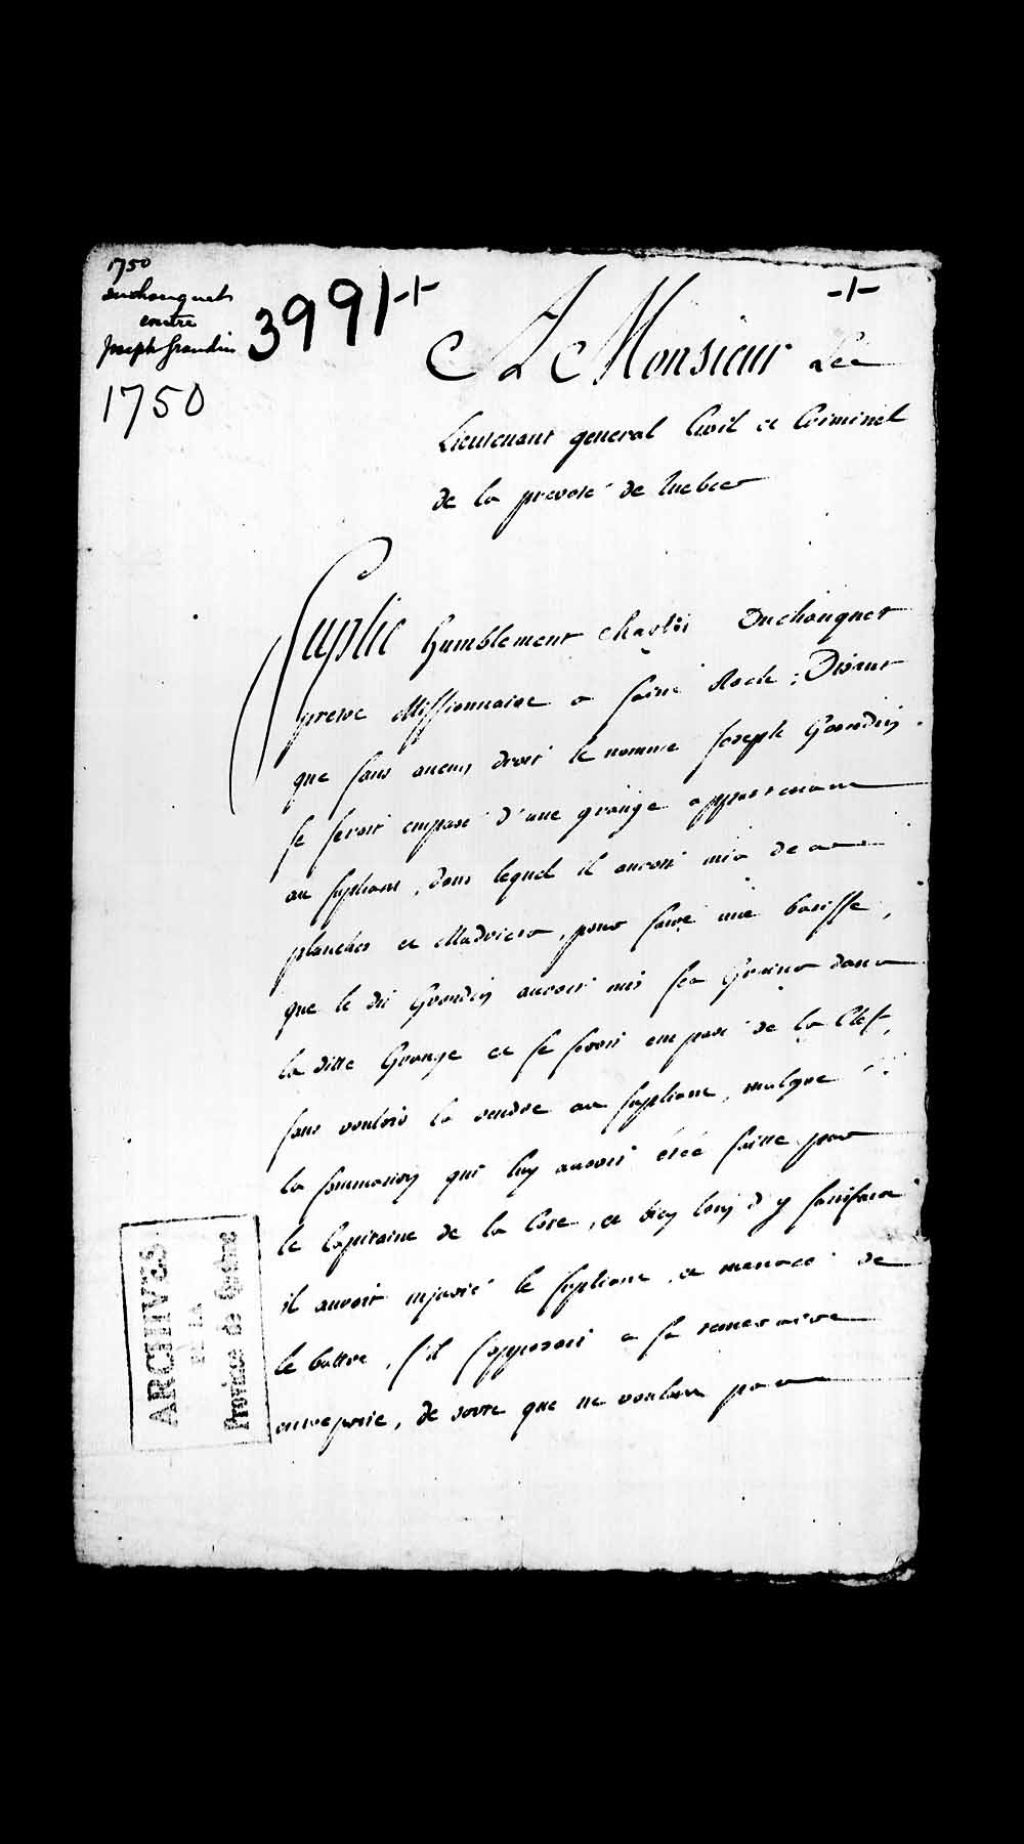 1750
Duchouquet
contre
Joseph Grandin
3991
1750
A Monsieur Le
Lieutenant general Civil et Criminel
de la prevosté de Quebec
Suplie humblement Charles Duchouquet
pretre Missionnaire a Saint Roch; Disant
que sans aucun droit le nommé Joseph Grandin
se seroit emparé d'une grange appartenant
au supliant, dans lequel il auroit mis des
planches et Madriers, pour faire une batisse,
que le dit Grandin auroit mis ses Grains dans
la ditte Grange et se seroit emparé de la Cleft,
sans vouloir la rendre au supliant, malgré
la sommation qui luy auroit étée faitte par
le Capitaine de la Cote, et bien loin d'y satisfaire
il auroit injurié le supliant, et menacé de
le battre, s'il s'opposoit a sa temeraire
entreprise, de sorte que ne voulant pas
ARCHIVES
DE LA
Province de Québec